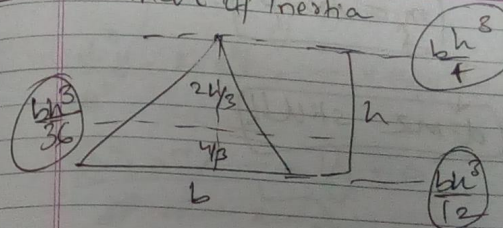 of Inertia
bh³/4
2h/3
bh³/36
h
h/3
b
bh³/12